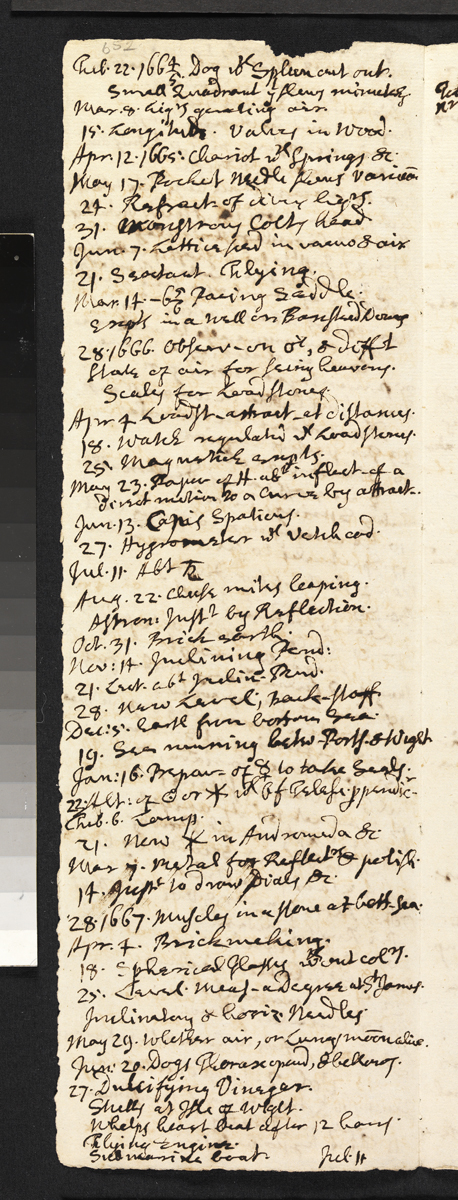 652
Feb. 22. 1664/5 Dog wth Spleen cut out.
Small Quadrant
Mar. 8. air.
15. Longitude. Valves in Wood.
Apr. 12. 1665. Chariot wth Springs &c.
May 17. Pocket Needle shews
24. Refract. of
31. Monstrous Colts head
Jun. 7. Lettice seed in vacuo & air
21. Sextant. Flying.
Mar. 14 -6 5/6 Pacing Saddle.
Expts in a well on Banstead Downs
28. 1666. Observ-on & difft
State of air for seing heavens.
Scales for Loadstones
Apr 4 Loadst- attract- at distances.
18. Watch regulated wth Loadstones.
25. Magnetick expts.
May 23. Paper of H. abt inflect- of a
direct motion to a curve by attract-.
Jun. 13. Spatious.
27. Hygrometer wth Vetch cod.
Jul. 11 Abt ♄
Aug. 22. Cheese mites leaping.
Astron: Justt by Reflection.
Oct. 31. Brick earth.
Nov: 14 Inclining Pend:
21. Lect. abt Inclin- Pend.
28. New Level; Back-staff
Dec: 5. Earth from bottom Sea.
19. Sea running betw- Ports- & Wight
Jan: 16. Prepar- of ☿ to take Seals.
22. Alt: of ☉ or ✶ wth
Feb. 6. Lamp.
21. New ✶ in Andromeda &c
Mar 7. Metal for Reflect & polish.
14. Justt to draw Dials &c
28. 1667. Muscles in a stone at bott- Sea.
Apr. 4. Brickmaking.
18. Spherical Glasses wthout colrs.
25. Level. Meas- a Degree at St James.
Inclinatory & horiz- Needles
May 29. Whether air, or Lungs motion alive.
Jun. 20. Dogs Thorax opend, & bellows.
27. Dulcifying Vinegar.
Shells at Isle of Wight.
Whelps heart beat after 12 hours
Flying Engine.
Submarine boat. Jul. 11